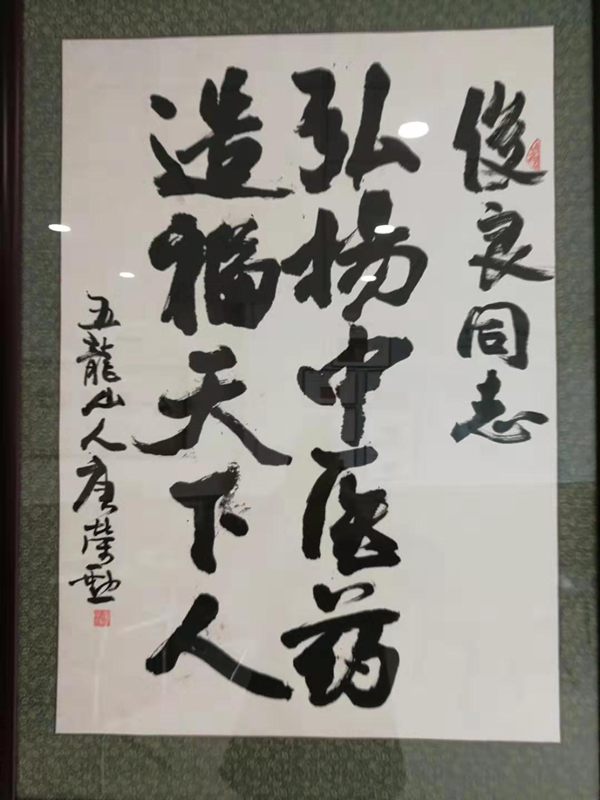 俊良同志
弘扬中医药
造福天下人
五龍山人唐荣勳